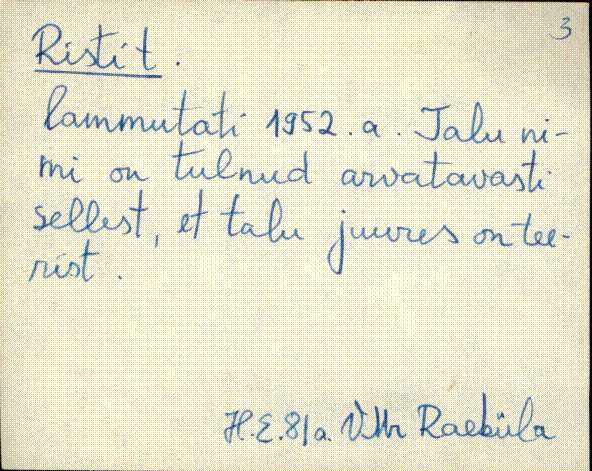 3
Risti t.
lammutati 1952. a. Talu ni-
mi on tulnud arvatavasti
sellest, et talu juures on tee-
rist.
H.E.81a. Raeküla